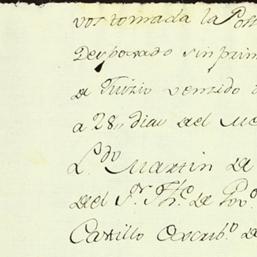 vos tomada la Pos
Desposado sin prim
de Juizio venzido
a 28, dias del Me
L.do Martin de
del S.r Th.e de Gov.
Castillo escrib.o de